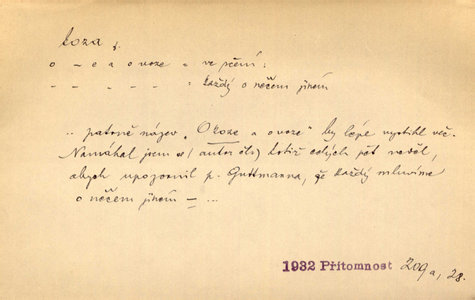 koza f.
o – e a o voze „ ve rčení:
– „ – „ – „ – „ každý o něčem jiném
.. patrně název „O koze a o voze" by lépe vystihl věc.
Namáhal jsem se (autor čl.) totiž celých pět neděl,
abych upozornil p. Guttmanna, že každý mluvíme
o něčem jiném – ...
1932 Přítomnost 209a, 28.